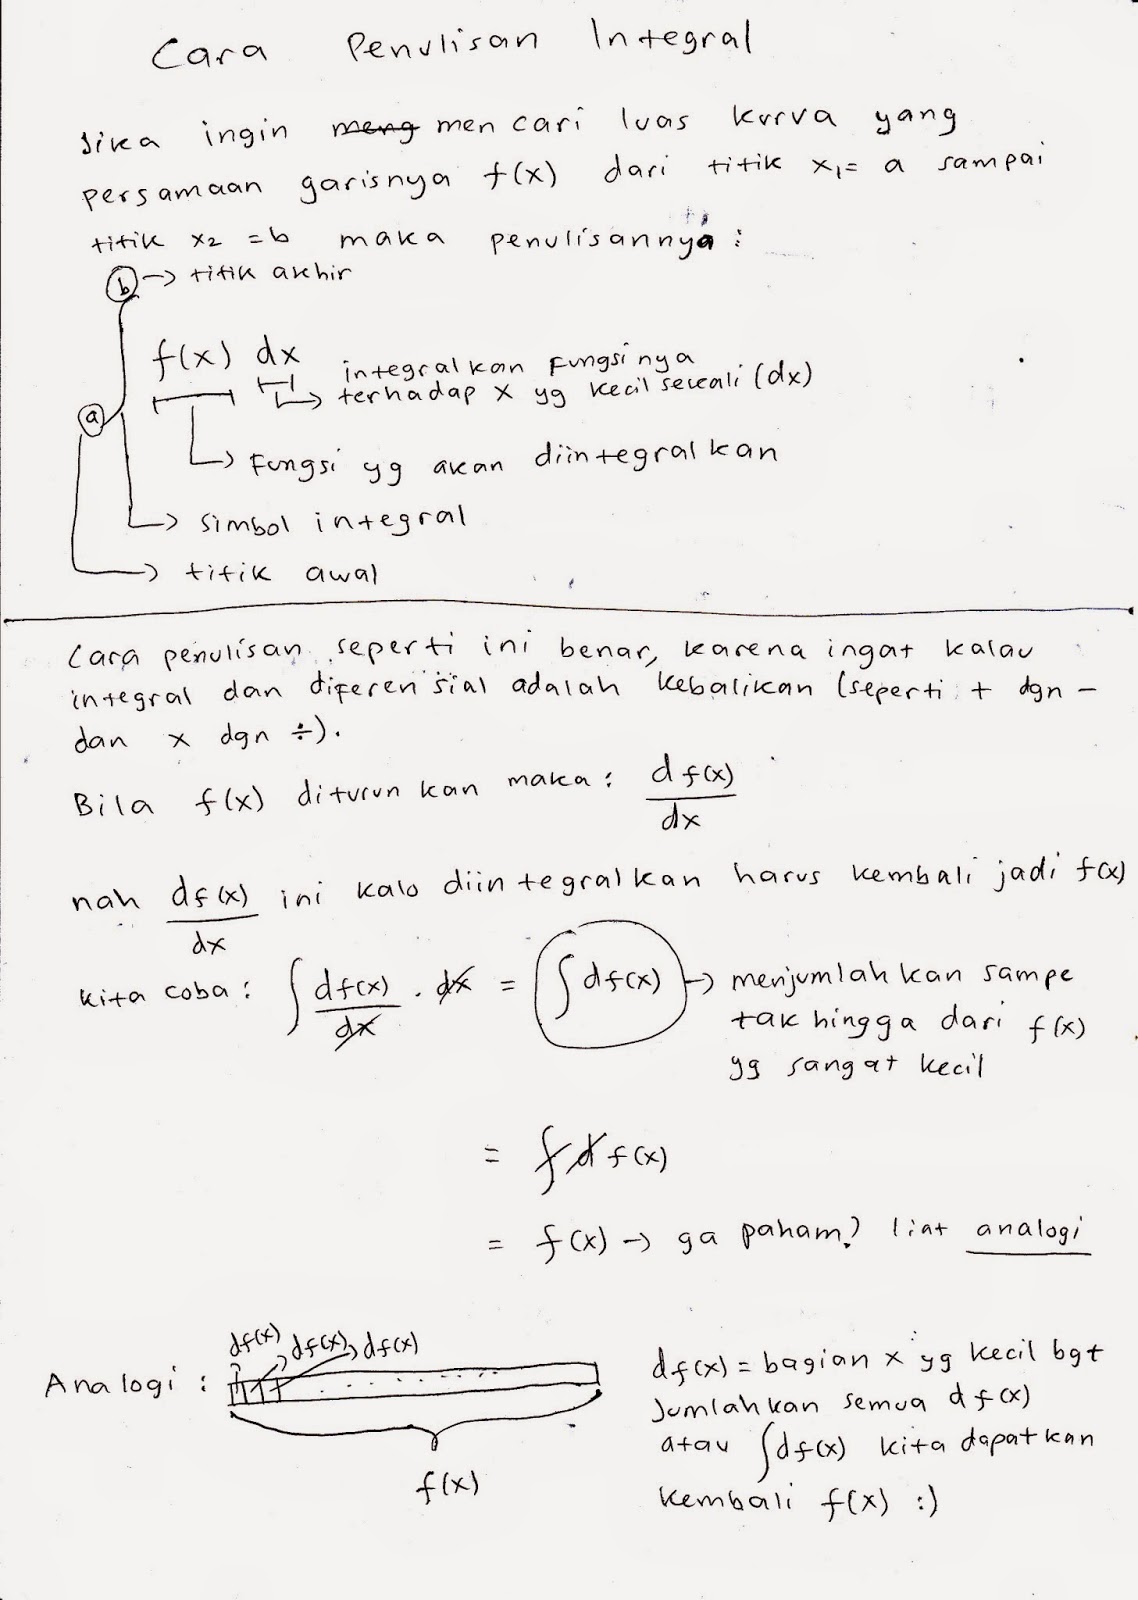 Cara Penulisan Integral
Jika ingin meng mencari luas kurva yang
persamaan garisnya f(x) dari titik x₁= a sampai
titik x₂ = b maka penulisannya :
b → titik akhir
f(x) dx integralkan fungsinya
terhadap x yg kecil sekali (dx)
a
→ Fungsi yg akan diintegralkan
→ simbol integral
→ titik awal
Cara penulisan seperti ini benar, karena ingat kalau
integral dan diferensial adalah kebalikan (seperti + dgn −
dan x dgn ÷).
Bila f(x) diturunkan maka : df(x)/dx
nah df(x)/dx ini kalo diintegralkan harus kembali jadi f(x)
kita coba : ∫ df(x)/dx . dx = ∫ df(x) → menjumlahkan sampe
tak hingga dari f(x)
yg sangat kecil
= ∫ d f(x)
= f(x) → ga paham? liat analogi
df(x) df(x), df(x)
Analogi :
f(x)
df(x) = bagian x yg kecil bgt
Jumlahkan semua df(x)
atau ∫df(x) kita dapatkan
kembali f(x) :)